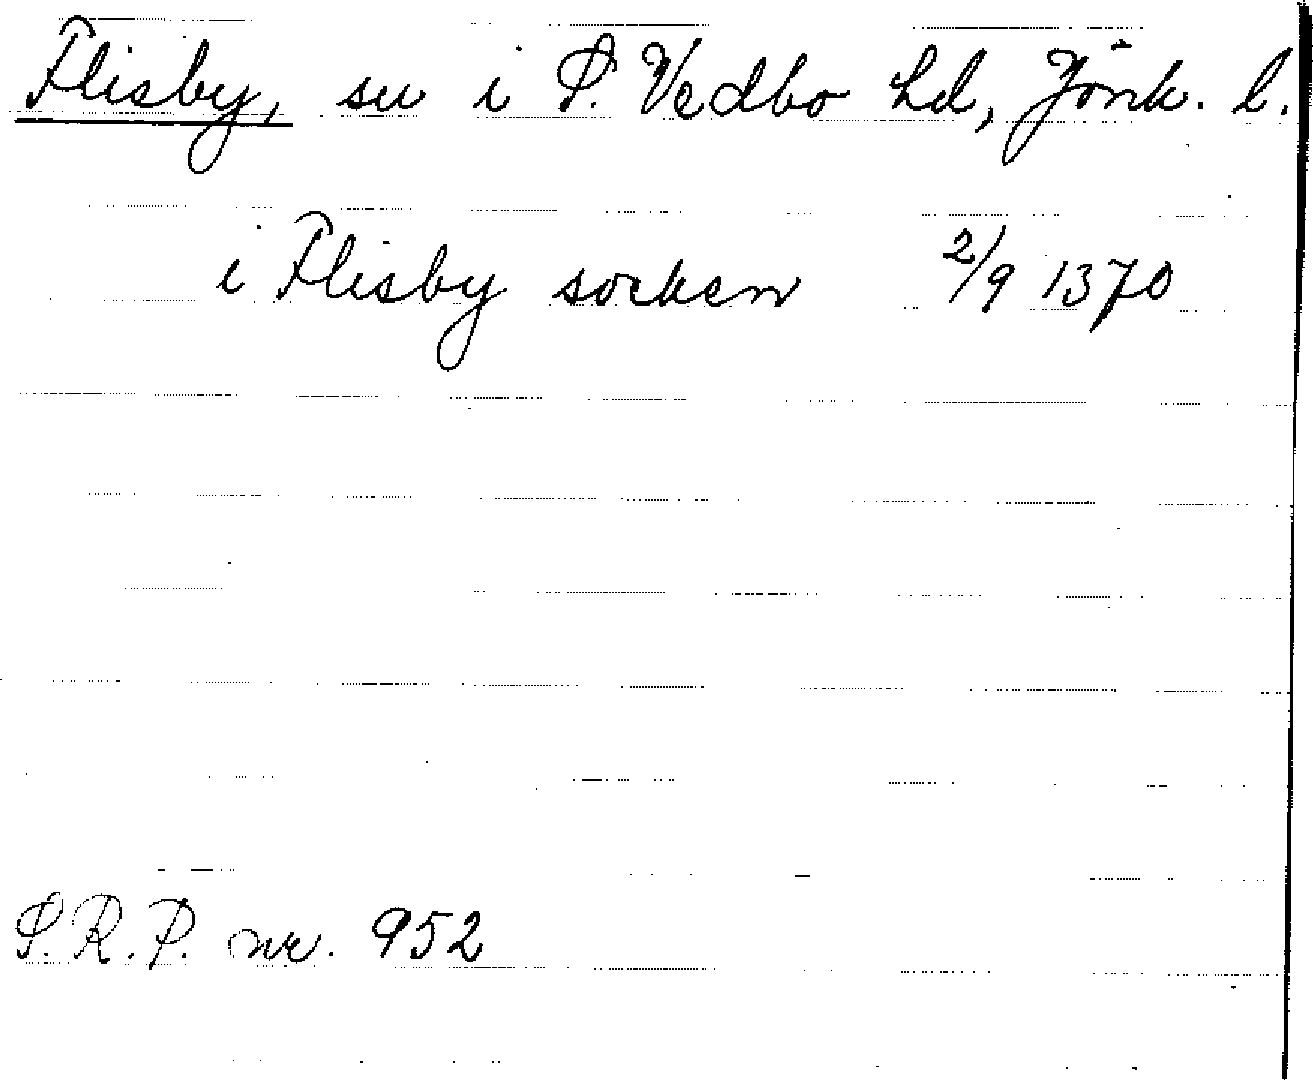 Flisby, sn i S. Vedbo hd, Jönk. l.
i Flisby socken 2/9 1370
S.R.P. nr. 952